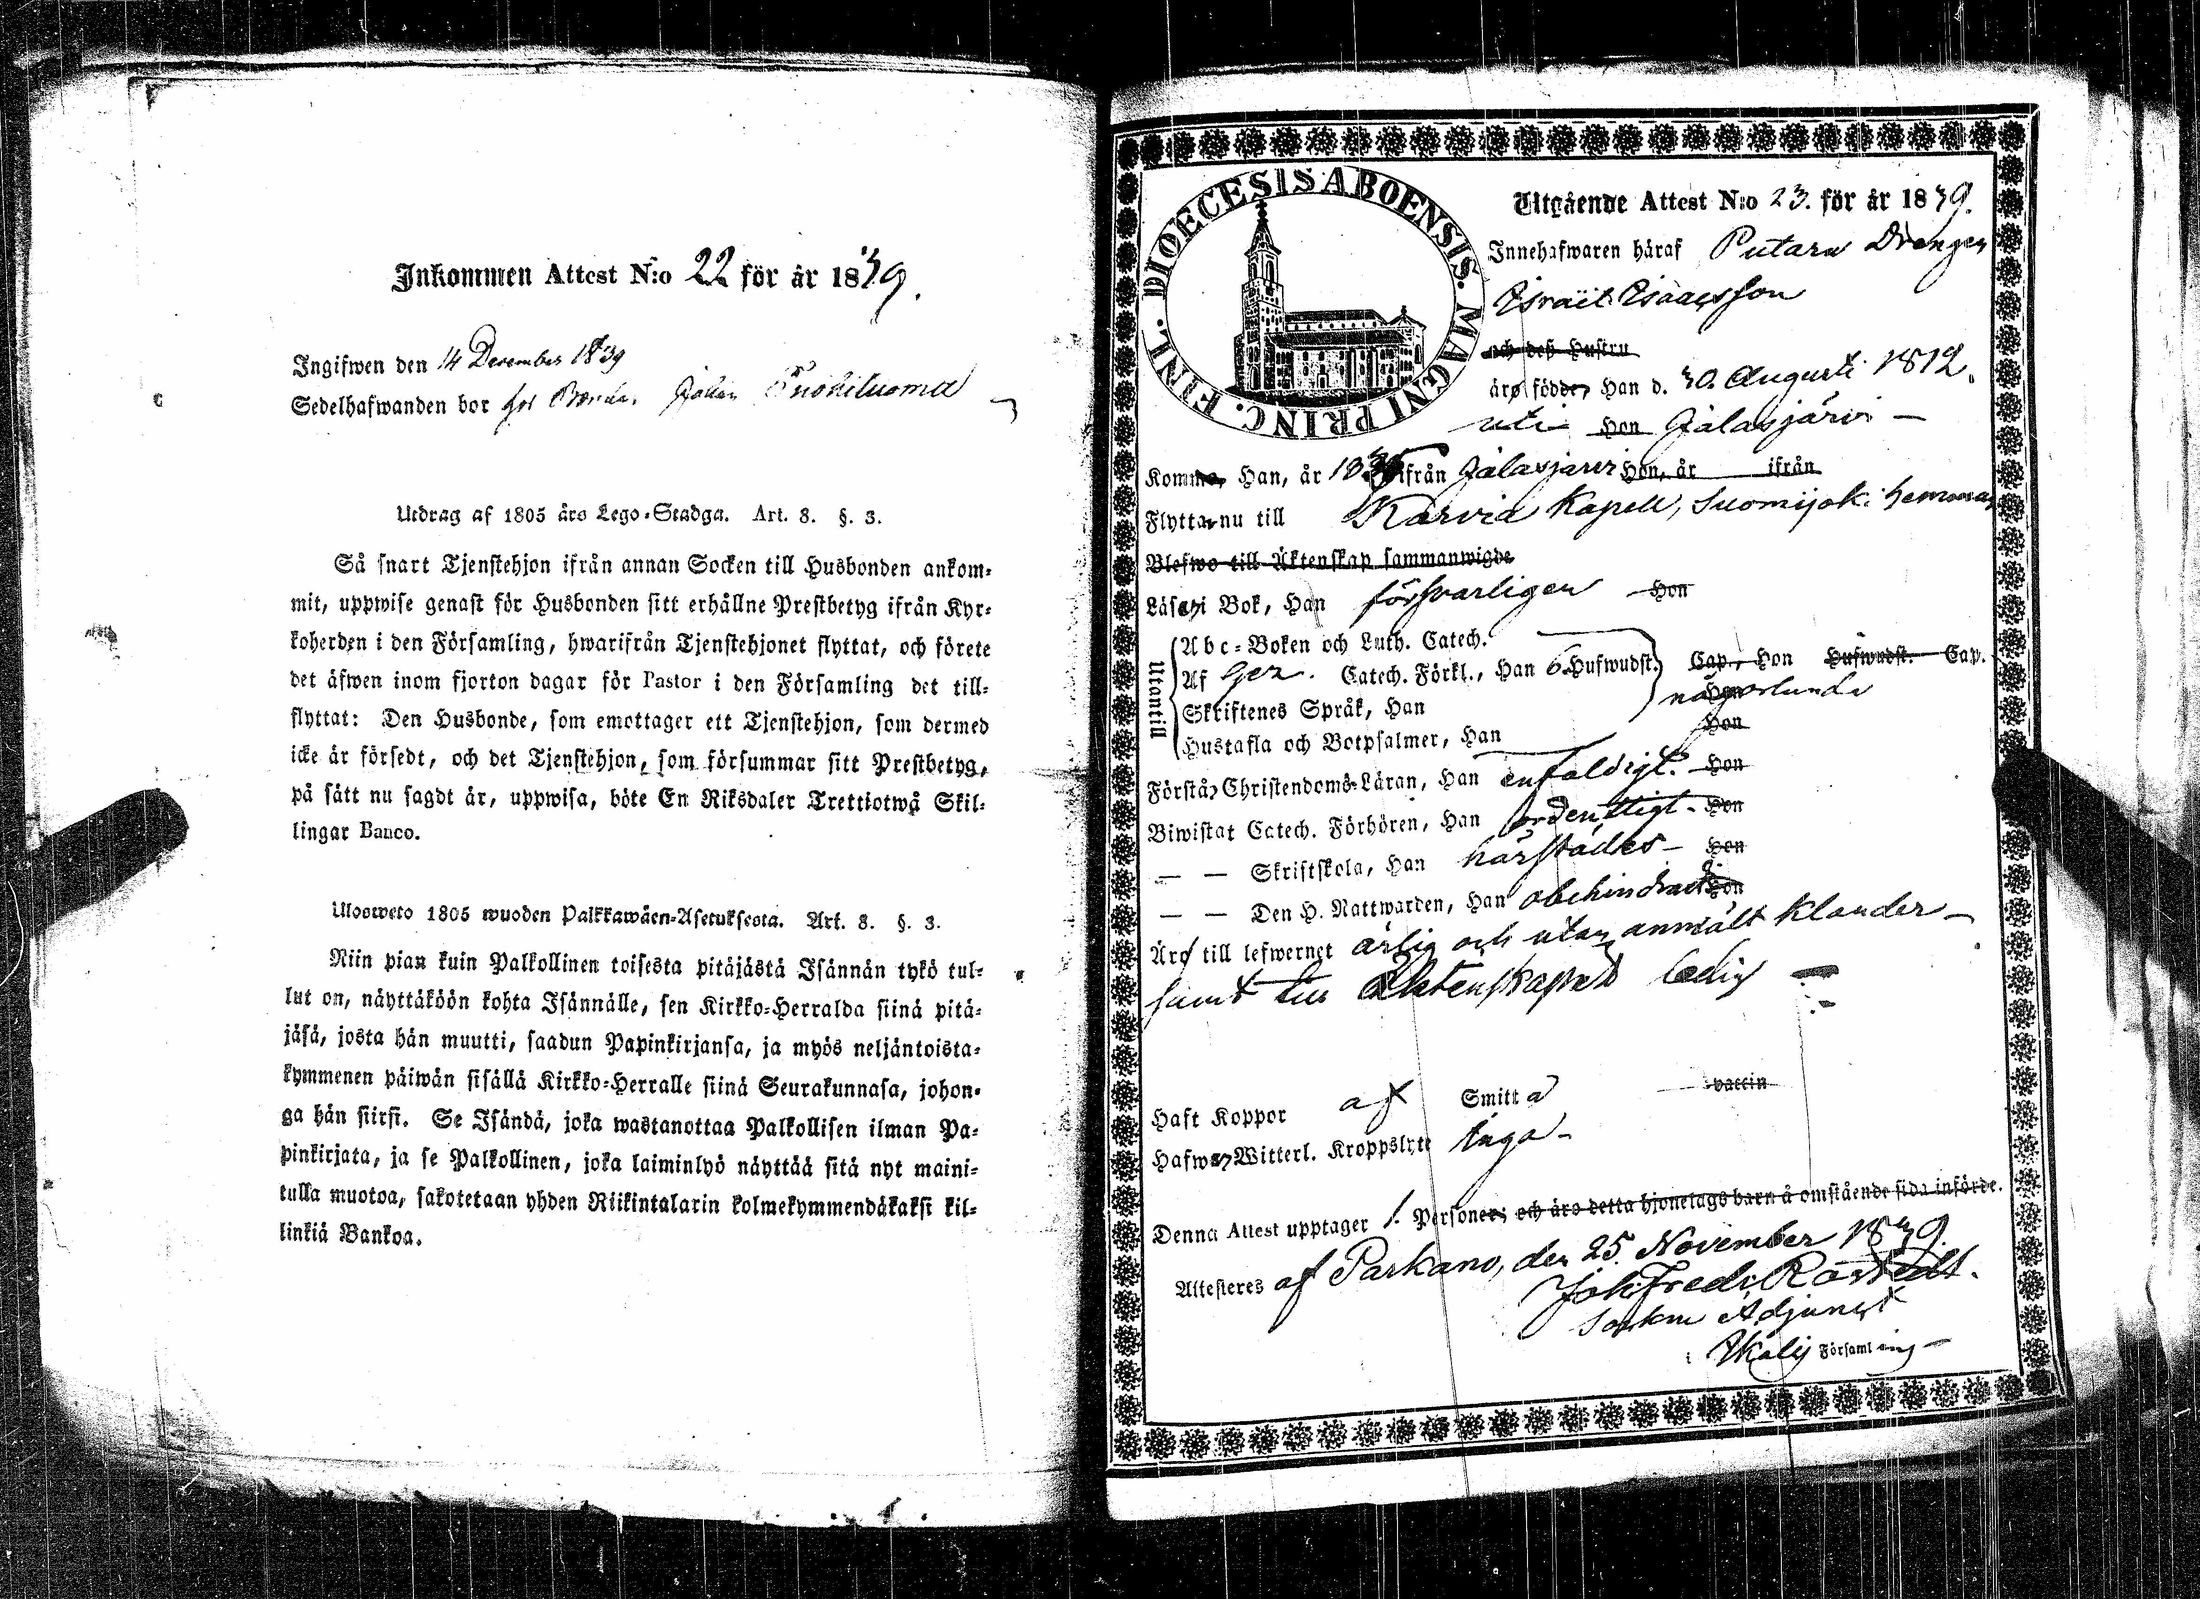 Inkommen Attest N:o 22 för år 1839.
Ingifwen den 14 December 1839
Sedelhafwanden bor hos Bonden Johan
Utdrag af 1805 års Lego-Stadga. Art. 8. §. 3.
Så snart Tjenstehjon ifrån annan Socken till Husbonden ankom-
mit, uppwise genast för Husbonden sitt erhållne Prestbetyg ifrån Kyr-
koherden i den Församling, hwarifrån Tjenstehjonet flyttat, och förete
det äfwen inom fjorton dagar för Pastor i den Församling det till-
flyttat: Den Husbonde, som emottager ett Tjenstehjon, som dermed
icke är försedt, och det Tjenstehjon, som försummar sitt Prestbetyg,
på sätt nu sagdt är, uppwisa, böte En Riksdaler Trettiotwå Skil-
lingar Banco.
Ulosweto 1805 wuoden Palkkawäen-Asetuksesta. Art. 8. §. 3.
Niin pian kuin Palkollinen toisesta pitäjästä Isännän tykö tul-
lut on, näyttäköön kohta Isännälle, sen Kirkko-Herralda siinä pitä-
jäsä, josta hän muutti, saadun Papinkirjansa, ja myös neljäntoista-
kymmenen päiwän sisällä Kirkko-Herralle siinä Seurakunnasa, johon-
ga hän siirsi. Se Isändä, joka wastanottaa Palkollisen ilman Pa-
pinkirjata, ja se Palkollinen, joka laiminlyö näyttää sitä nyt maini-
tulla muotoa, sakotetaan yhden Riikintalarin kolmekymmendäkaksi kil-
linkiä Bankoa.
DIOECESIS ABOENSIS. MAGNI PRINC. FINL.
Utgående Attest N:o 23. för år 1839.
Innehafwaren häraf Putara Drengen
Israël Isaacsson
och deß Hustru
äro födde, Han d. 30. Augusti 1812.
uti Hon Jalasjärvi
Komne, Han, år ifrån Jalasjärvi Hon, år ifrån
Flytta nu till Karvia Kapell, Suomijoki hemman
Blefwo till Äktenskap sammanwigde
Läser i Bok, Han försvarligen Hon
Utantill
Abc-Boken och Luth. Catech.
Af Gez. Catech. Förkl., Han 6 Hufwudst. Cap., Hon Hufwudst. Cap.
Skriftenes Språk, Han någorlunda Hon
Hustafla och Botpsalmer, Han Hon
Förstår Christendoms-Läran, Han enfaldigt. Hon
Biwistat Catech. Förhören, Han ordentligt Hon
— — Skriftskola, Han härstädes Hon
— — Den H. Nattwarden, Han obehindrad Hon
Äro till lefwernet ärlig och utan anmält klander
samt till Äktenskapet ledig
Haft Koppor af Smitta vaccin
Hafwer Witterl. Kroppslyte inga
Denna Attest upptager 1. Personer; och äro detta hjonelags barn å omstående sida införde.
Attesteres af Parkano, den 25. November 1839.
Joh. Fredr. Rostedt.
Sockne Adjunct
i Ikalis Församling